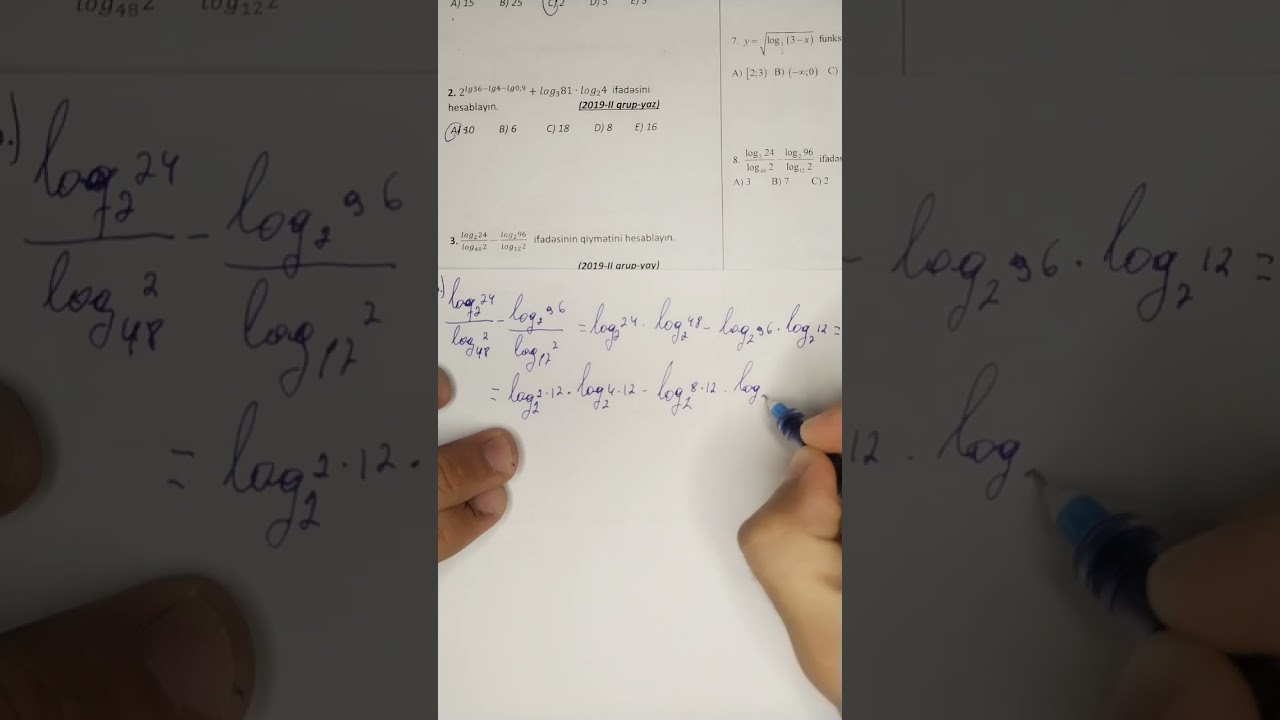 A) 15 B) 25 C) 2 D) 5 E) 3
2. 2^{lg36−lg4−lg0,9} + log₃81 · log₂4 ifadəsini
hesablayın. (2019-II qrup-yaz)
A) 10 B) 6 C) 18 D) 8 E) 16
3. log₂24/log₄₈2 − log₂96/log₁₂2 ifadəsinin qiymətini hesablayın.
(2019-II qrup-yay)
7. y = √(log_{1/2}(3−x)) funks
A) [2;3) B) (−∞;0) C)
8. log₂24/log₄₈2 − log₂96/log₁₂2 ifadəs
A) 3 B) 7 C) 2
log₂24/log₄₈2 − log₂96/log₁₂2 = log₂24 · log₂48 − log₂96 · log₂12 =
= log₂2·12 · log₂4·12 − log₂8·12 · log₂